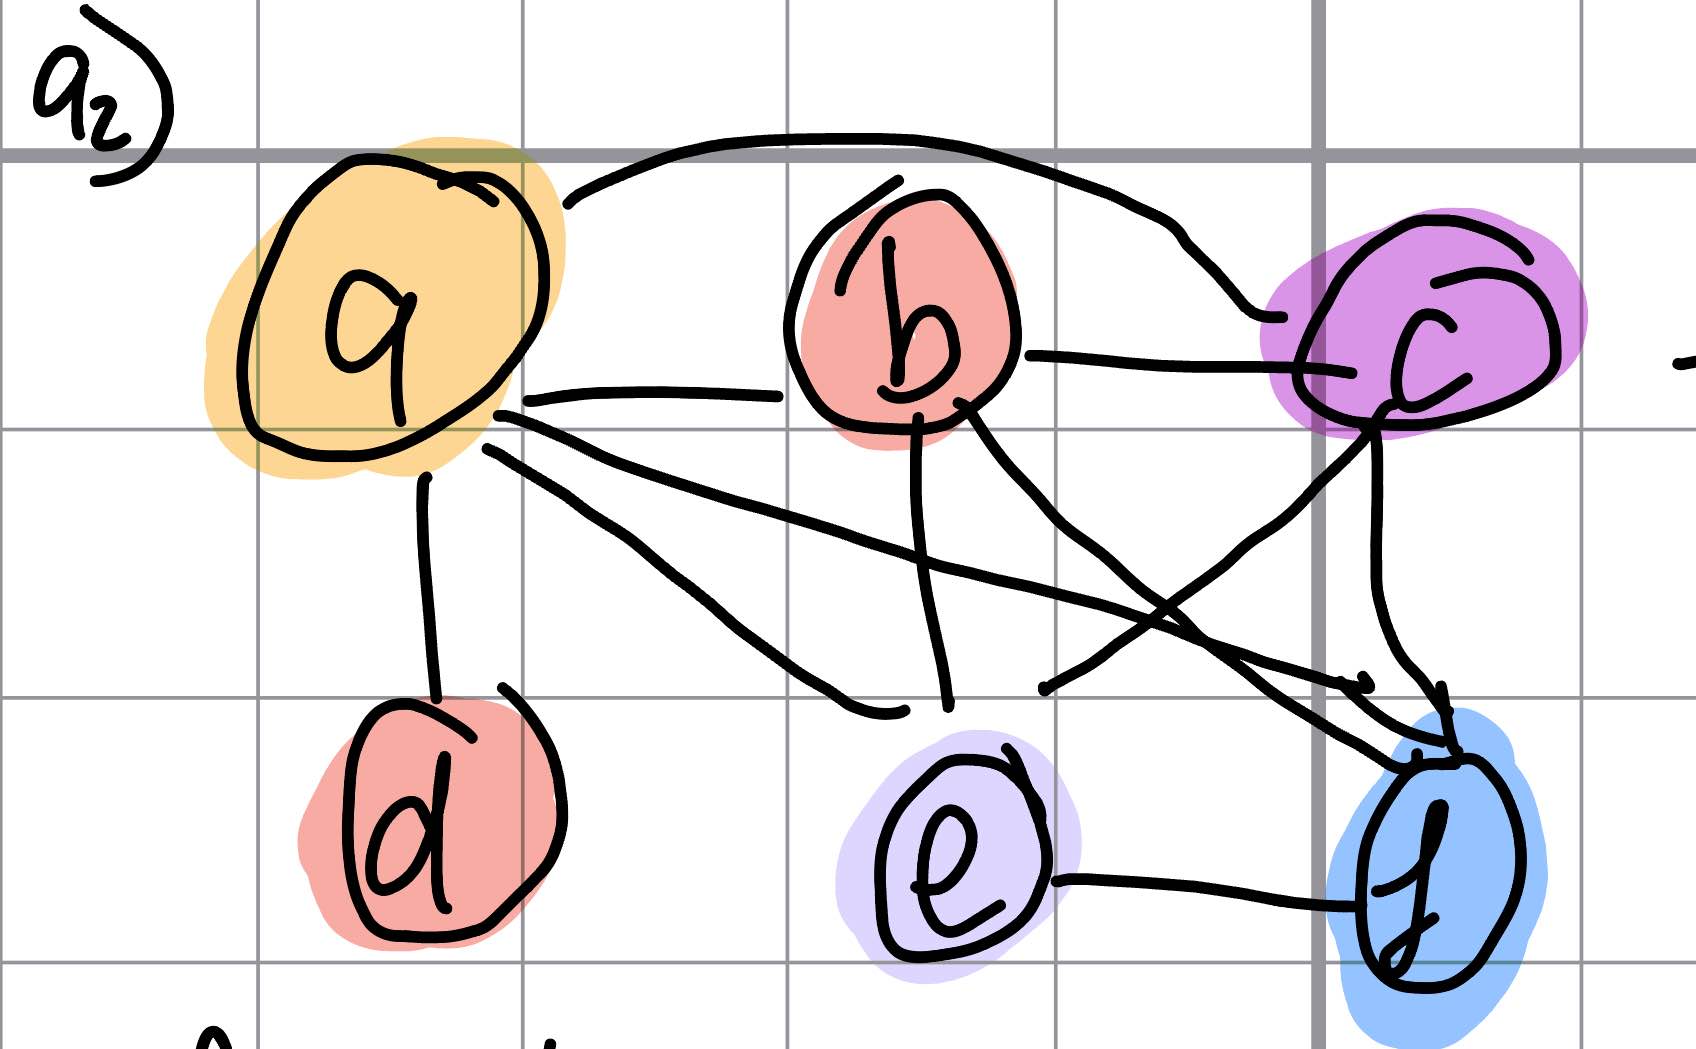 a2)
a b c
d e f